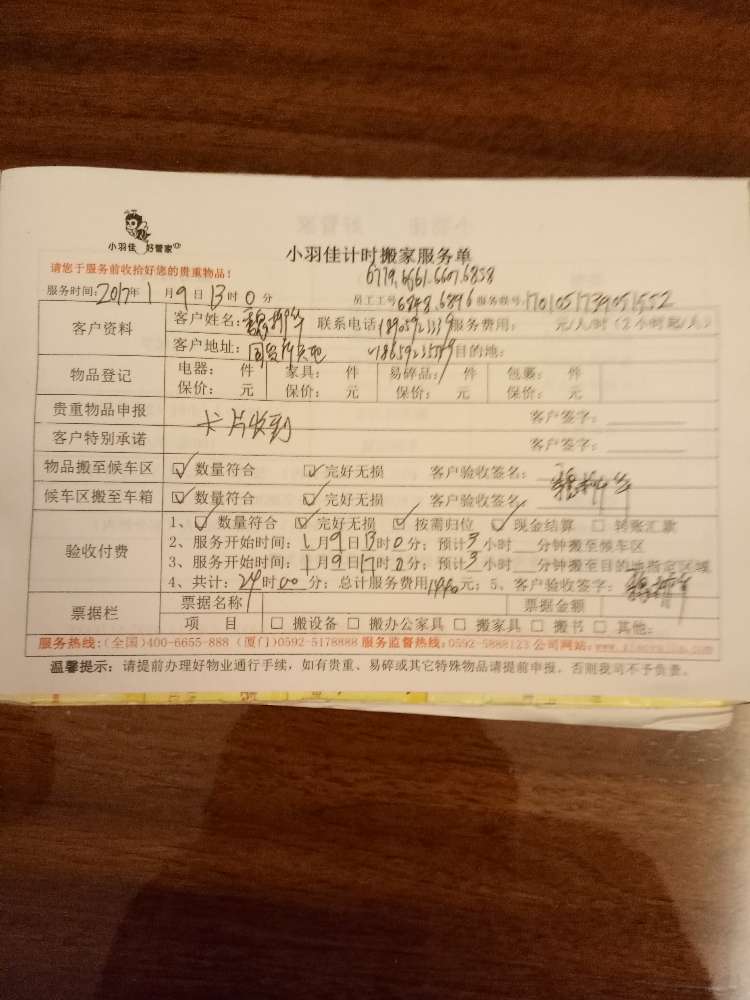 小羽佳 好管家
小羽佳计时搬家服务单
请您于服务前收拾好您的贵重物品！
6779.6661.6607.6858
服务时间：2017年1月9日13时0分 员工工号6848.6896 服务账号：1701051739051552
客户资料 客户姓名： 联系电话 服务费用： 元/人/时（2小时起/人）
客户地址： 目的地：
物品登记 电器： 件 家具： 件 易碎品： 件 包裹： 件
保价： 元 保价： 元 保价： 元 保价： 元
贵重物品申报 客户签字：
卡片收到
客户特别承诺 客户签字：
物品搬至候车区 ☑数量符合 ☑完好无损 客户验收签名：
候车区搬至车箱 ☑数量符合 ☑完好无损 客户验收签名：
验收付费 1、☑数量符合 ☑完好无损 ☑按需归位 ☑现金结算 □转账汇款
2、服务开始时间：1月9日13时0分；预计3小时__分钟搬至候车区
3、服务开始时间：1月9日17时0分；预计3小时__分钟搬至目的地指定区域
4、共计：24时00分；总计服务费用1440元；5、客户验收签字：
票据栏 票据名称 票据金额
项 目 □搬设备 □搬办公家具 □搬家具 □搬书 □其他：
服务热线：(全国)400-6655-888 (厦门)0592-5178888 服务监督热线：0592-5888123 公司网站：
温馨提示：请提前办理好物业通行手续，如有贵重、易碎或其它特殊物品请提前申报，否则我司不予负责。